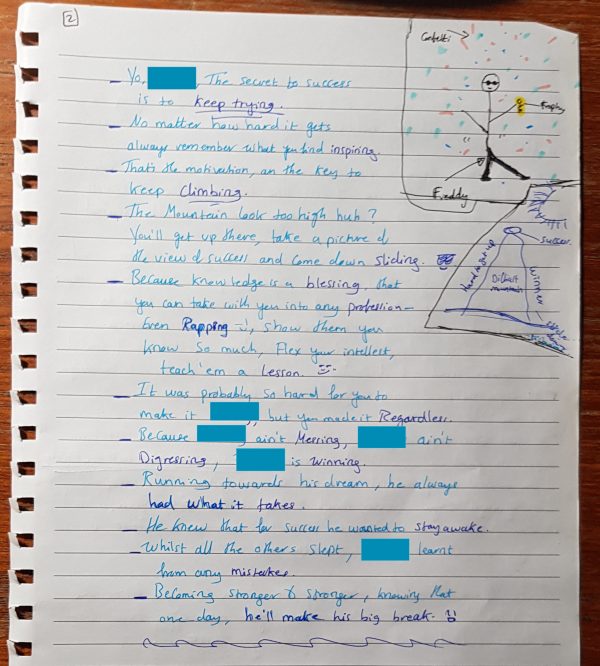 2
Confetti
Trophy
Freddy
- Yo, The secret to success
is to keep trying.
- No matter how hard it gets
always remember what you find inspiring.
- That's the motivation, an the key to
keep climbing.
- The Mountain look too high huh?
You'll get up there, take a picture of
the view of success and come down sliding.
success
hard route up
Difficult
mountain
winner
- Because knowledge is a blessing, that
you can take with you into any profession -
Even Rapping, show them you
know so much, Flex your intellest,
teach'em a Lesson.
- It was probably so hard for you to
make it , but you made it Regardless.
- Because ain't Messing, ain't
Digressing, is winning.
- Running towards his dream, he always
had what it takes.
- He knew that for success he wanted to stay awake.
- Whilst all the others slept, learnt
from any mistakes.
- Becoming stronger & stronger, knowing that
one day, he'll make his big break.